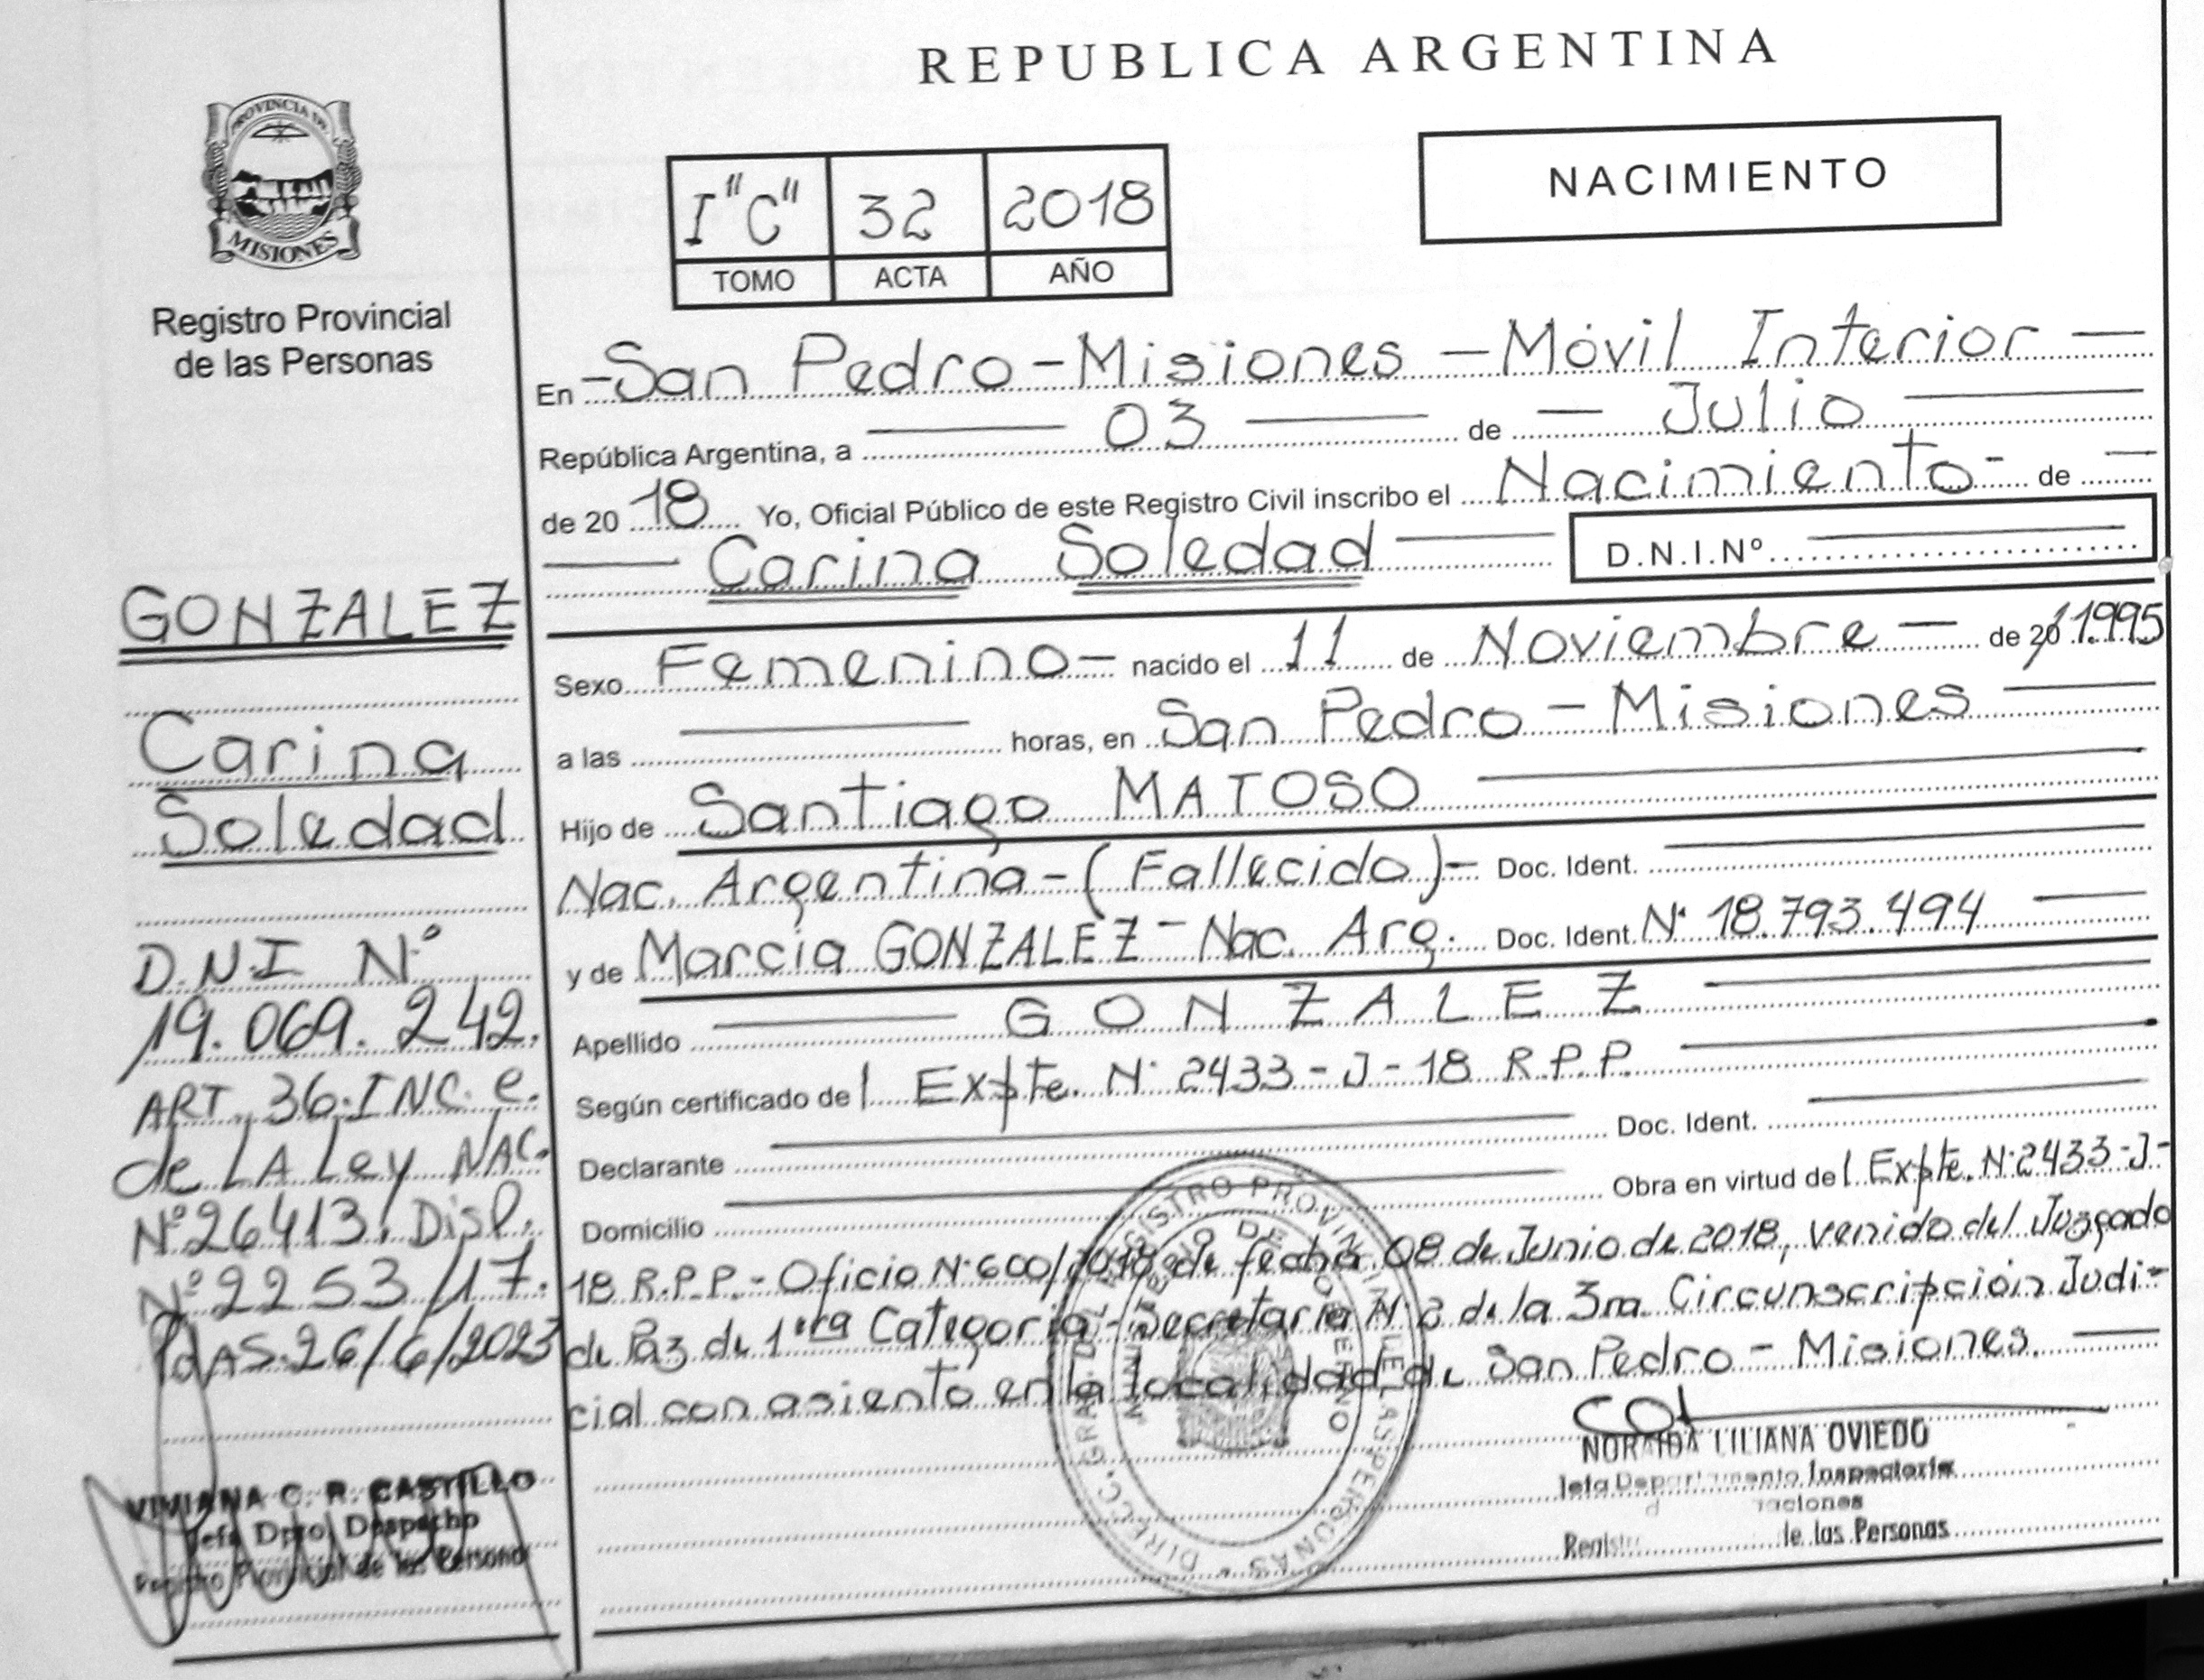 REPUBLICA ARGENTINA
PROVINCIA DE
MISIONES
Registro Provincial
de las Personas
NACIMIENTO
I "C" 32 2018
TOMO ACTA AÑO
En - San Pedro - Misiones - Móvil Interior -
República Argentina, a 03 de - Julio
de 2018 Yo, Oficial Público de este Registro Civil inscribo el Nacimiento - de -
Carina Soledad D.N.I.Nº
Sexo Femenino - nacido el 11 de Noviembre - de 20 1.995
a las horas, en San Pedro - Misiones
Hijo de Santiago MATOSO
Nac. Argentina - (Fallecido) - Doc. Ident.
y de Marcia GONZALEZ - Nac. Arg. Doc. Ident. Nº 18.793.494
Apellido GONZALEZ
Según certificado de l Expte. Nº 2433 - J - 18 R.P.P.
Declarante Doc. Ident.
Domicilio Obra en virtud de l Expte. Nº 2433-J-
18 R.P.P. - Oficio Nº 600/2018 de fecha 08 de Junio de 2018, venido del Juzgado
de Paz de 1era Categoria - Secretaria Nº 2 de la 3ra. Circunscripción Judi-
cial con asiento en la localidad de San Pedro - Misiones.
GONZALEZ
Carina
Soledad
D.N.I. Nº
19.069.242.
ART. 36. INC. e.
de LA Ley NAC.
Nº 26413. Disp.
Nº 2253/17.
PdAS. 26/6/2023
VIVIANA C. R. CASTILLO
Jefa Dpto. Despacho
Registro Provincial de las Personas
DIRECC. GRAL. DEL REGISTRO PROVINCIAL DE LAS PERSONAS
MINISTERIO DE GOBIERNO
NORAIDA LILIANA OVIEDO
Jefa Departamento Inspectoria
de las Personas